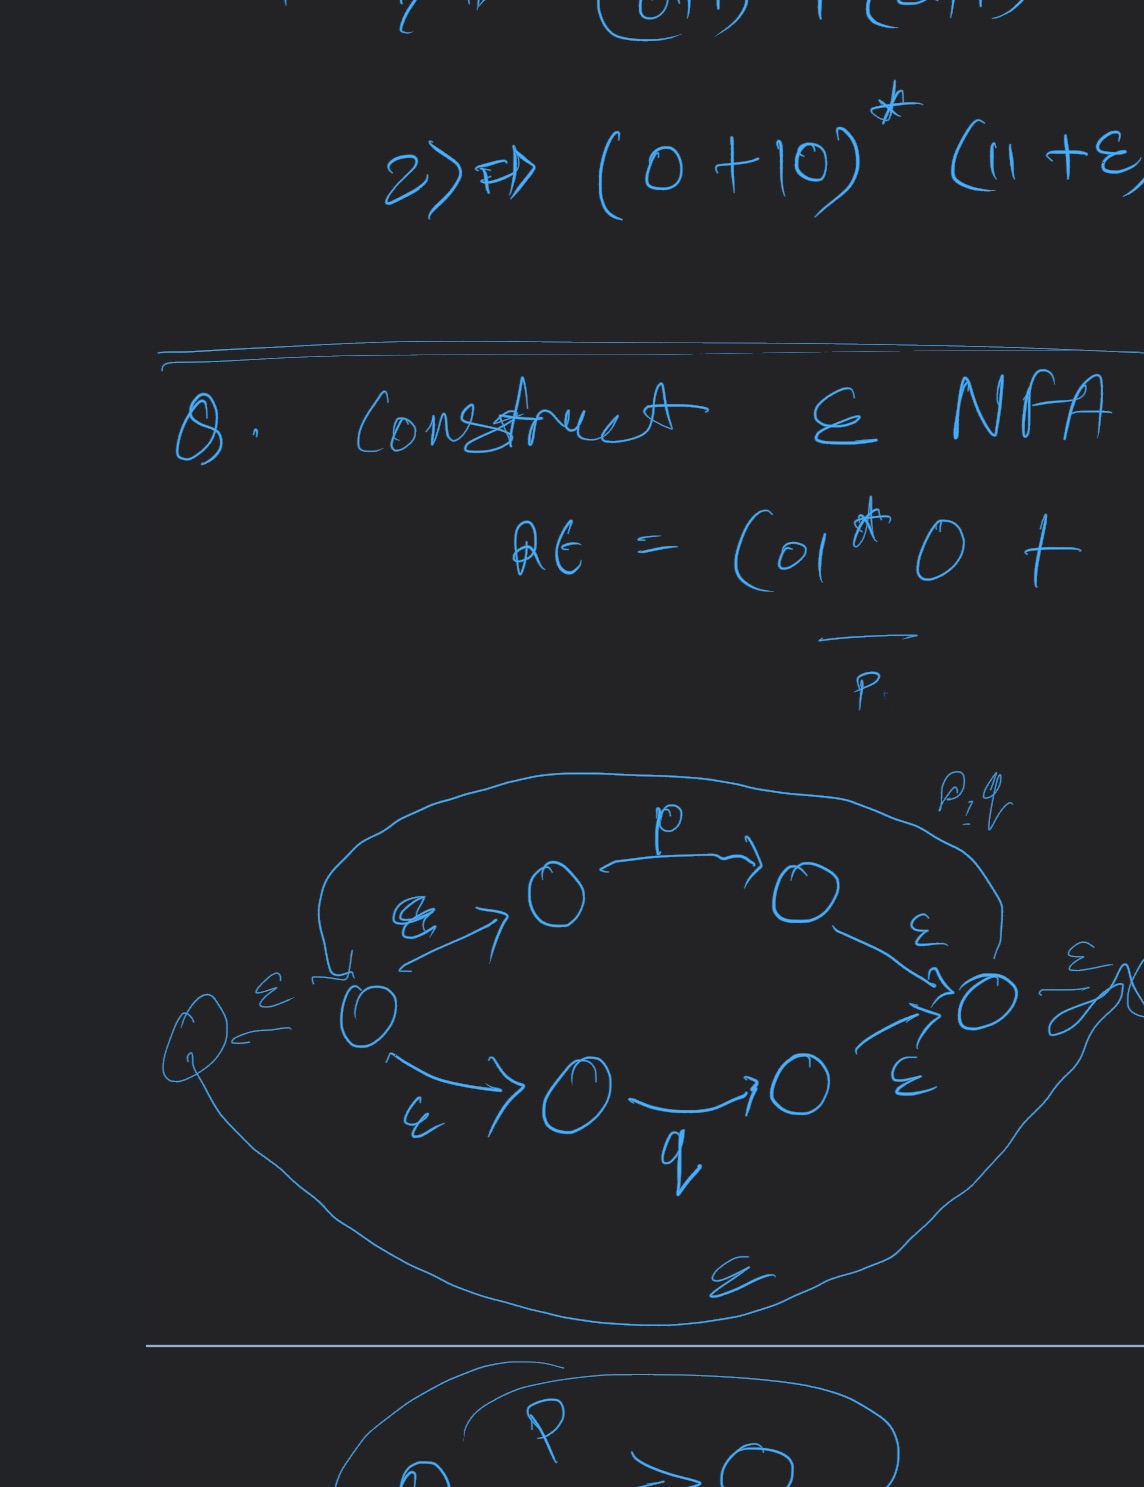 2) ⇒ (0 + 10)* (11 + ε)
Q. Construct ε NFA
RE = (01* 0 +
p.
p, q
p
ε ε
ε ε
ε ε
q
ε
p